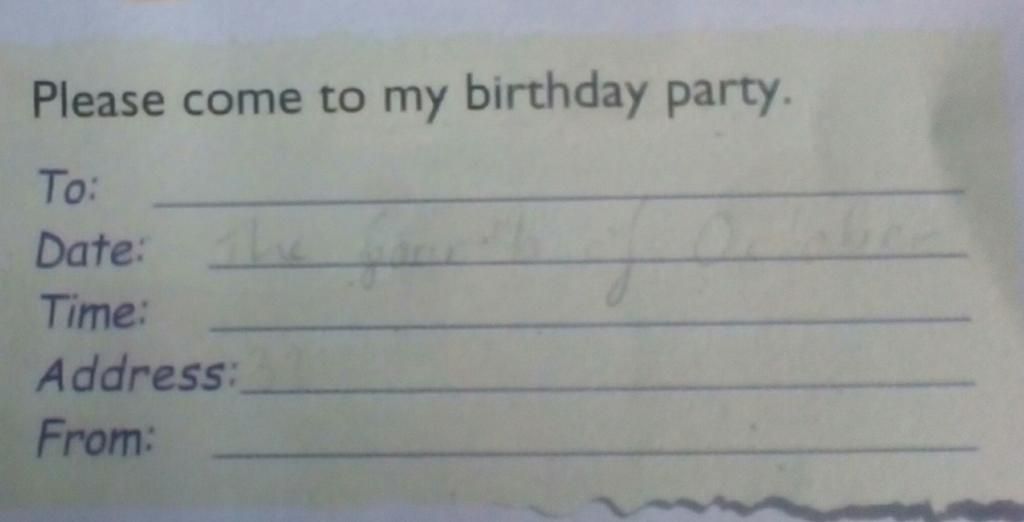 Please come to my birthday party.
To:
Date: The fourth of October
Time:
Address:
From: